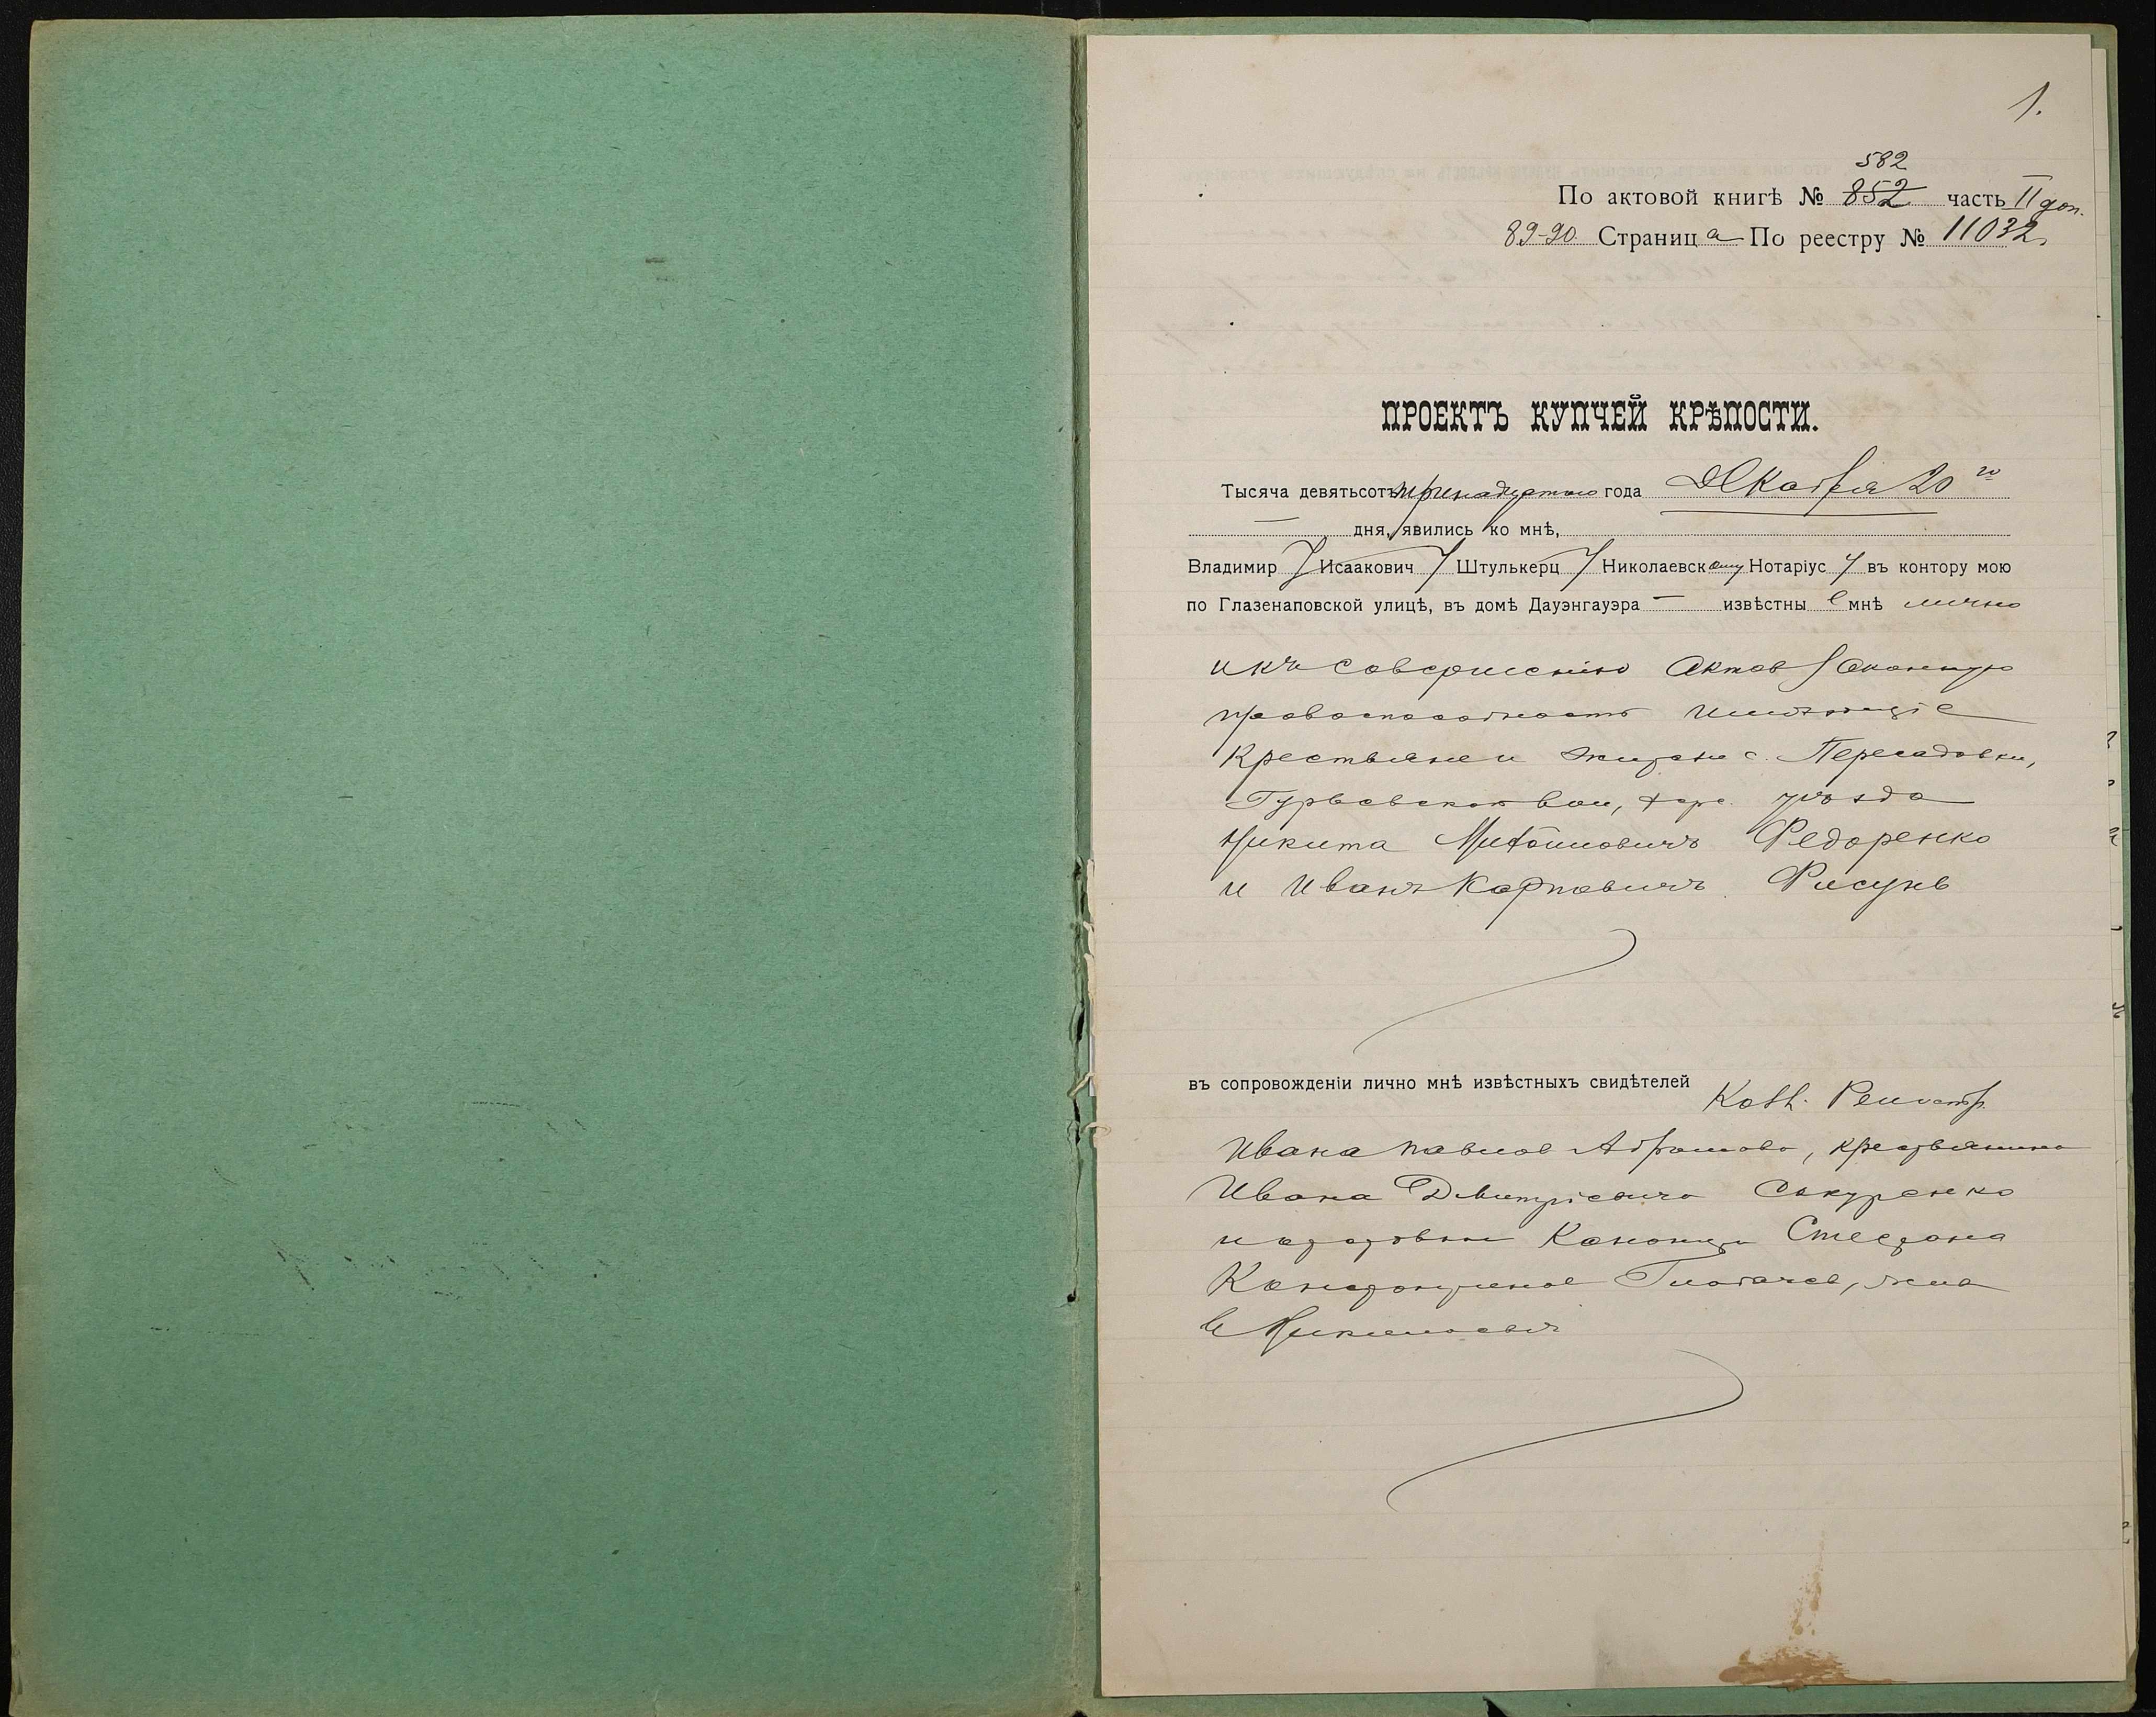 1.
582
По актовой книгѣ № 852 часть II доп.
89-90 Страница По реестру № 11032
ПРОЕКТЪ КУПЧЕЙ КРѢПОСТИ.
Тысяча девятьсотъ тринадцатаго года Декабря 20 го
дня, явились ко мнѣ,
Владимиру Исааковичу Штулькерцу Николаевскому Нотаріусу въ контору мою
по Глазенаповской улицѣ, въ домѣ Дауэнгауэра извѣстные мнѣ лично
и къ совершенію актов законную
правоспособность имѣющіе
Крестьяне и жит. с. Пересадовки,
Гурьевской вол., Херс. уѣзда
Никита Федоренко
и Иванъ Карповичъ
въ сопровожденіи лично мнѣ извѣстныхъ свидѣтелей Колл. Регистр.
Ивана Павлов Абрамова, крестьянина
Ивана Дмитріевича
Стефана
в Николаевѣ